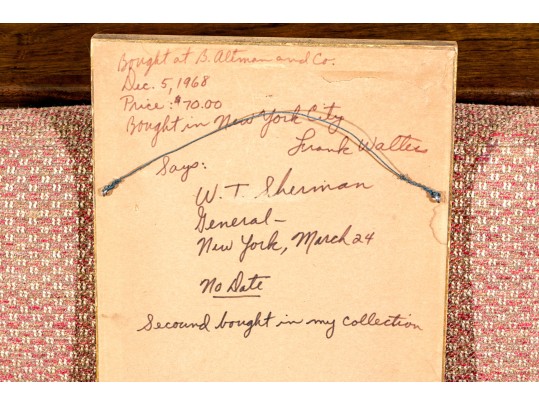 Bought at B. Altman and Co.
Dec. 5, 1968
Price: $70.00
Bought in New York City
Frank Walters
Says:
W. T. Sherman
General—
New York, March 24
No Date
Secound bought in my collection